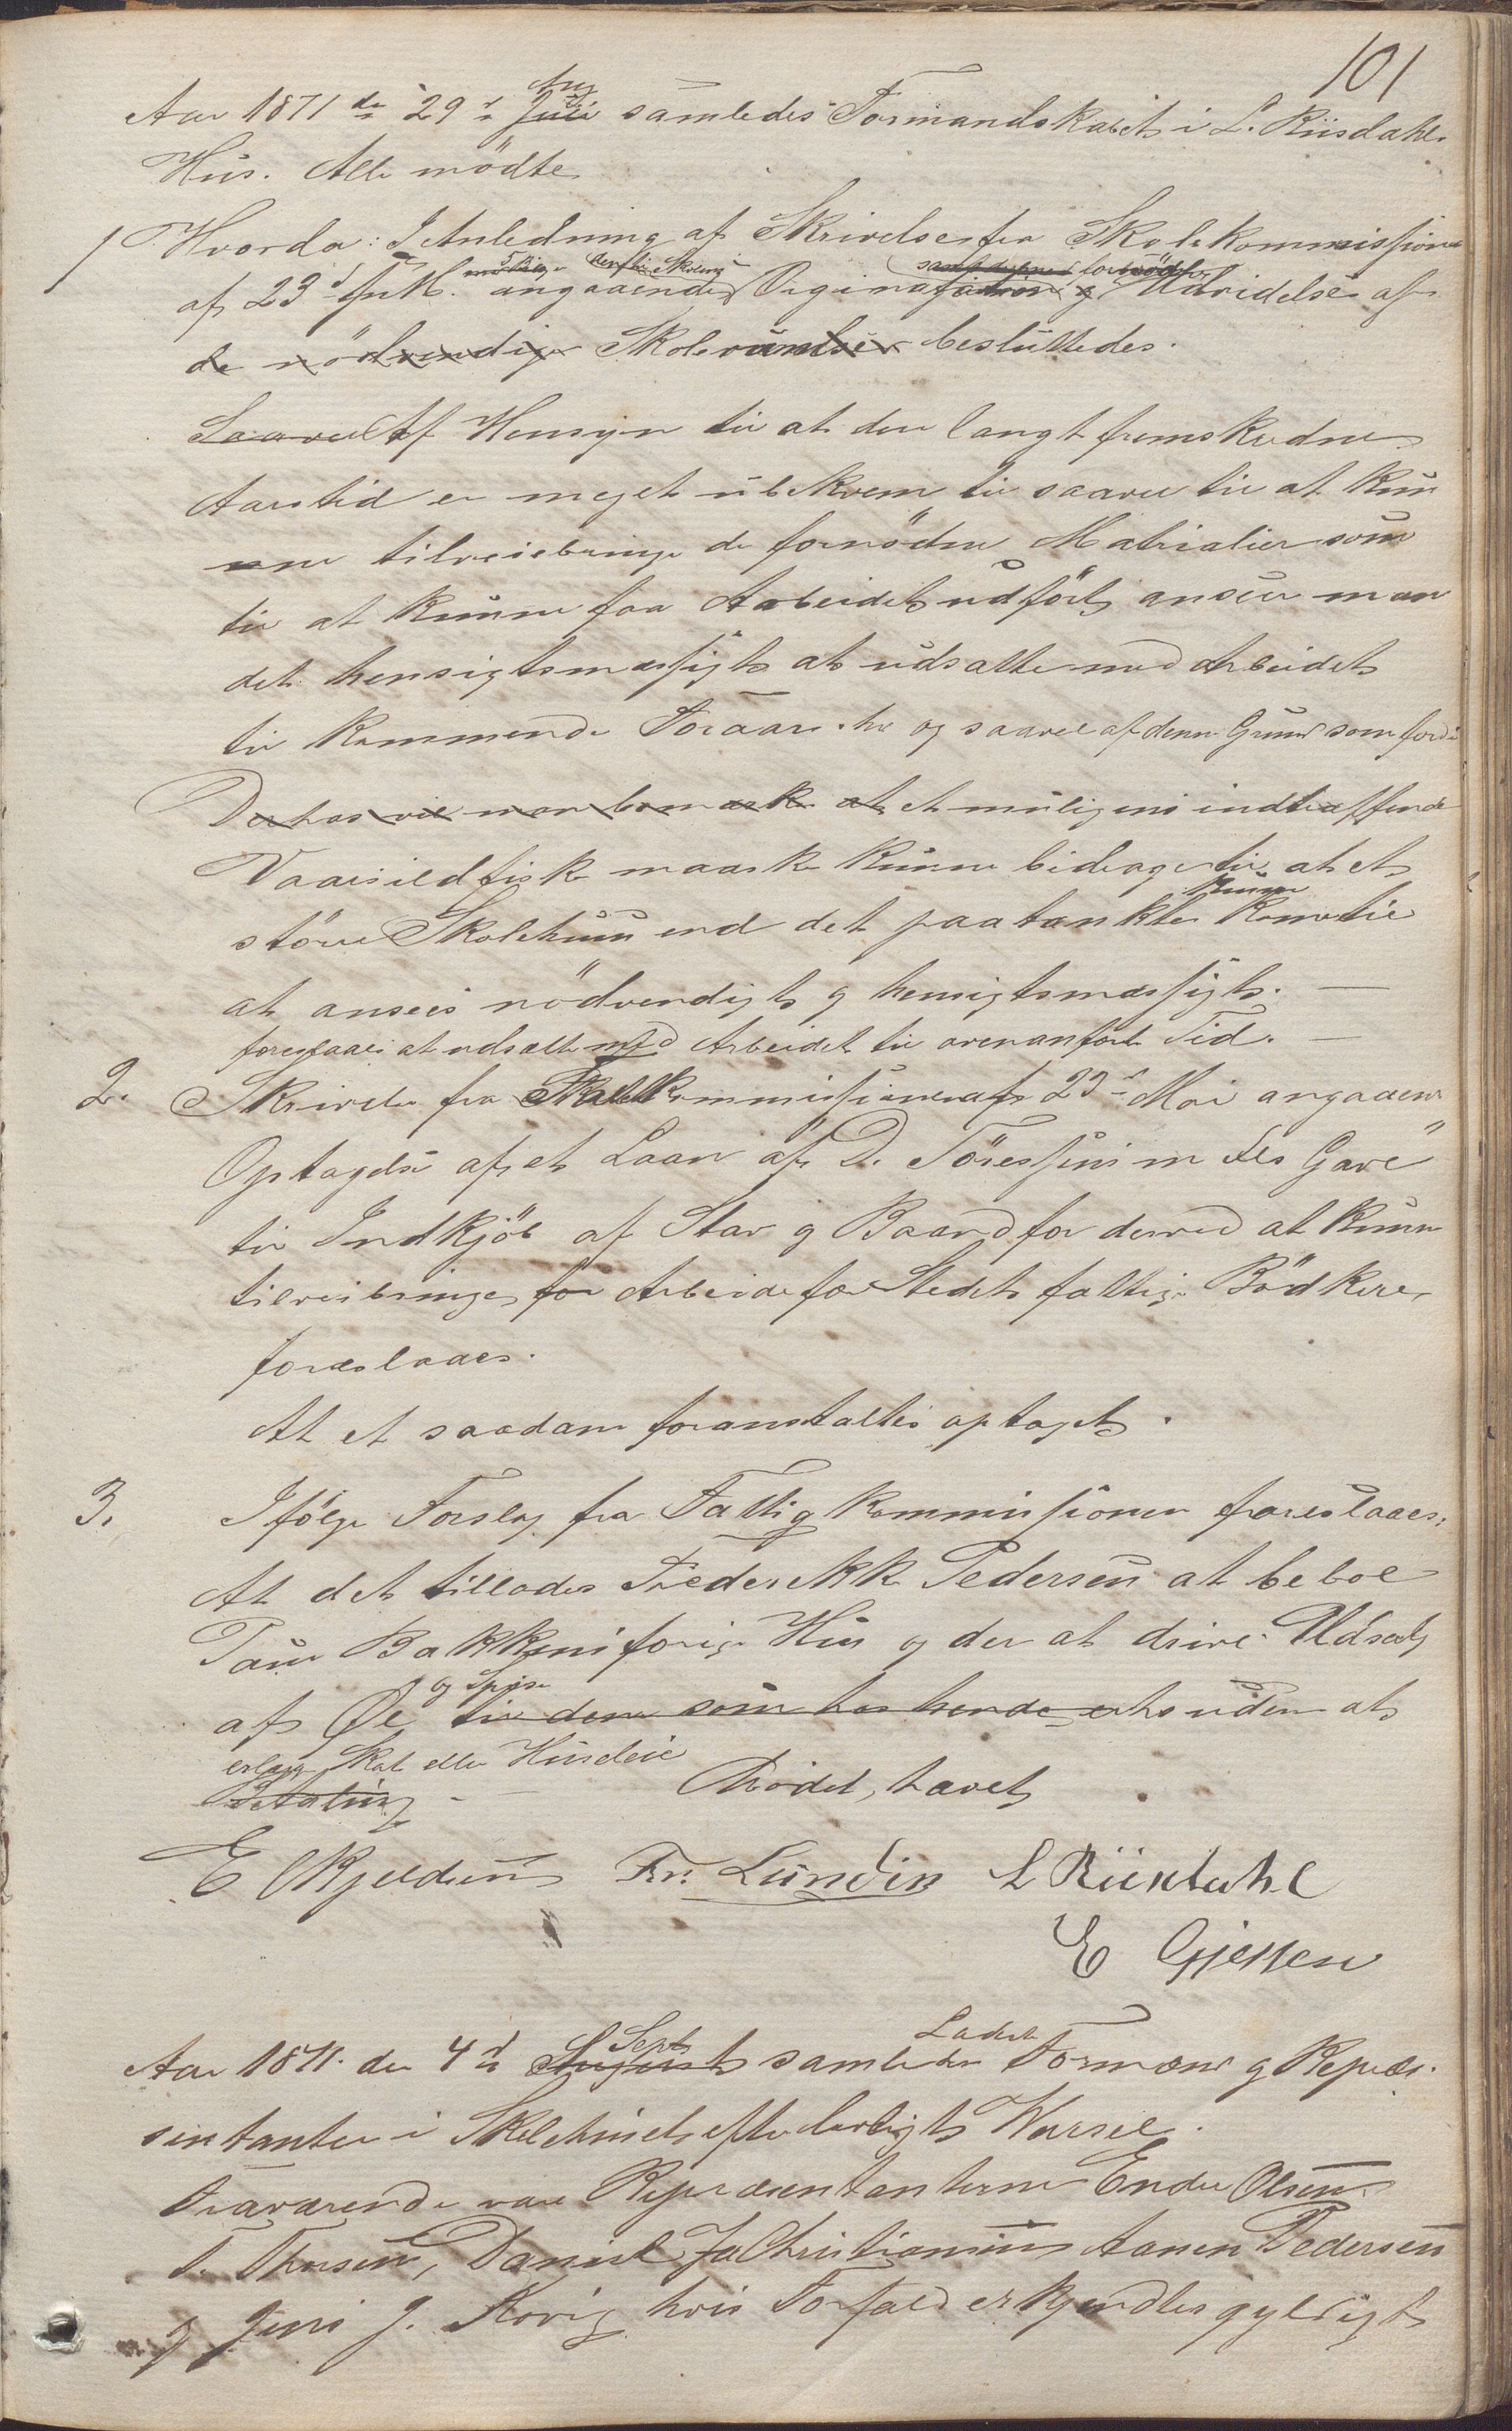 101
Aar 1871 den 29d Aug Juli samledes Formandskabet i L. Riisdahls
Hus. Alle mødte
1 Hvorda: I Anledning af Skrivelse fra Skolekommissionen
af 23d angaaende Udvidelse af
de nödvendige Skole besluttedes.
Saavel Af Hensyn til at den langt fremskredne
Aarstid er meget ubekvem til saavel til at kun
ne tilveiebringe de fornödne Matrialier som
til at kunne faa Arbeidet udfört, anseer man
det hensigtsmæssigt at udsætte med Arbeidet
til kommende Foraar og saavel af denne Grund som fordi
Derhos vil man bemærke at et muligens indtræffende
Vaarsildfiske maaske kunne bidrage til at et
kunne
större Skolehuus end det paatænkte komme til
at ansees nödvendigt og hensigtsmæssigt. —
foreslaaes at udsætte med Arbeidet til ovenanförte Tid. —
2. Skrivelse fra Kommissionen af 23d Mai angaaende
Optagelse af et Laan af D. Töressens m fls Gave"
til Indkjöb af Stav og Baand for derved at kunne
tilveiebringe for Arbeide for Stedets fattige Bödkere,
foreslaaes.
At et saadant foranstaltes optaget.
3. Ifölge Forslag fra Fattigkommissionen foreslaaes;
At det tillades Frederekke Pedersen at beboe
Bakkens forige Hus og der at drive Udsalg
og Spise
af Øl til dem som hos hende uden at
erlægge Skat eller Husleie
Betaling - Mödet hævet
E Kjeldsen Fr: Lundin L Riisdahl
E Gjessen
Aar 1871. den 4de Sept August samledes Ladet Formænd og Repræ-
sentanter i Skolehuset efter lovligt Varsel.
Fraværende vare Repræsentanterne Endre Olsen
T. Thorsen, Daniel Ja Christiansen Aanen Pedersen
og Jens J. Rovig hvis Forfald erkjendtes gyldigt